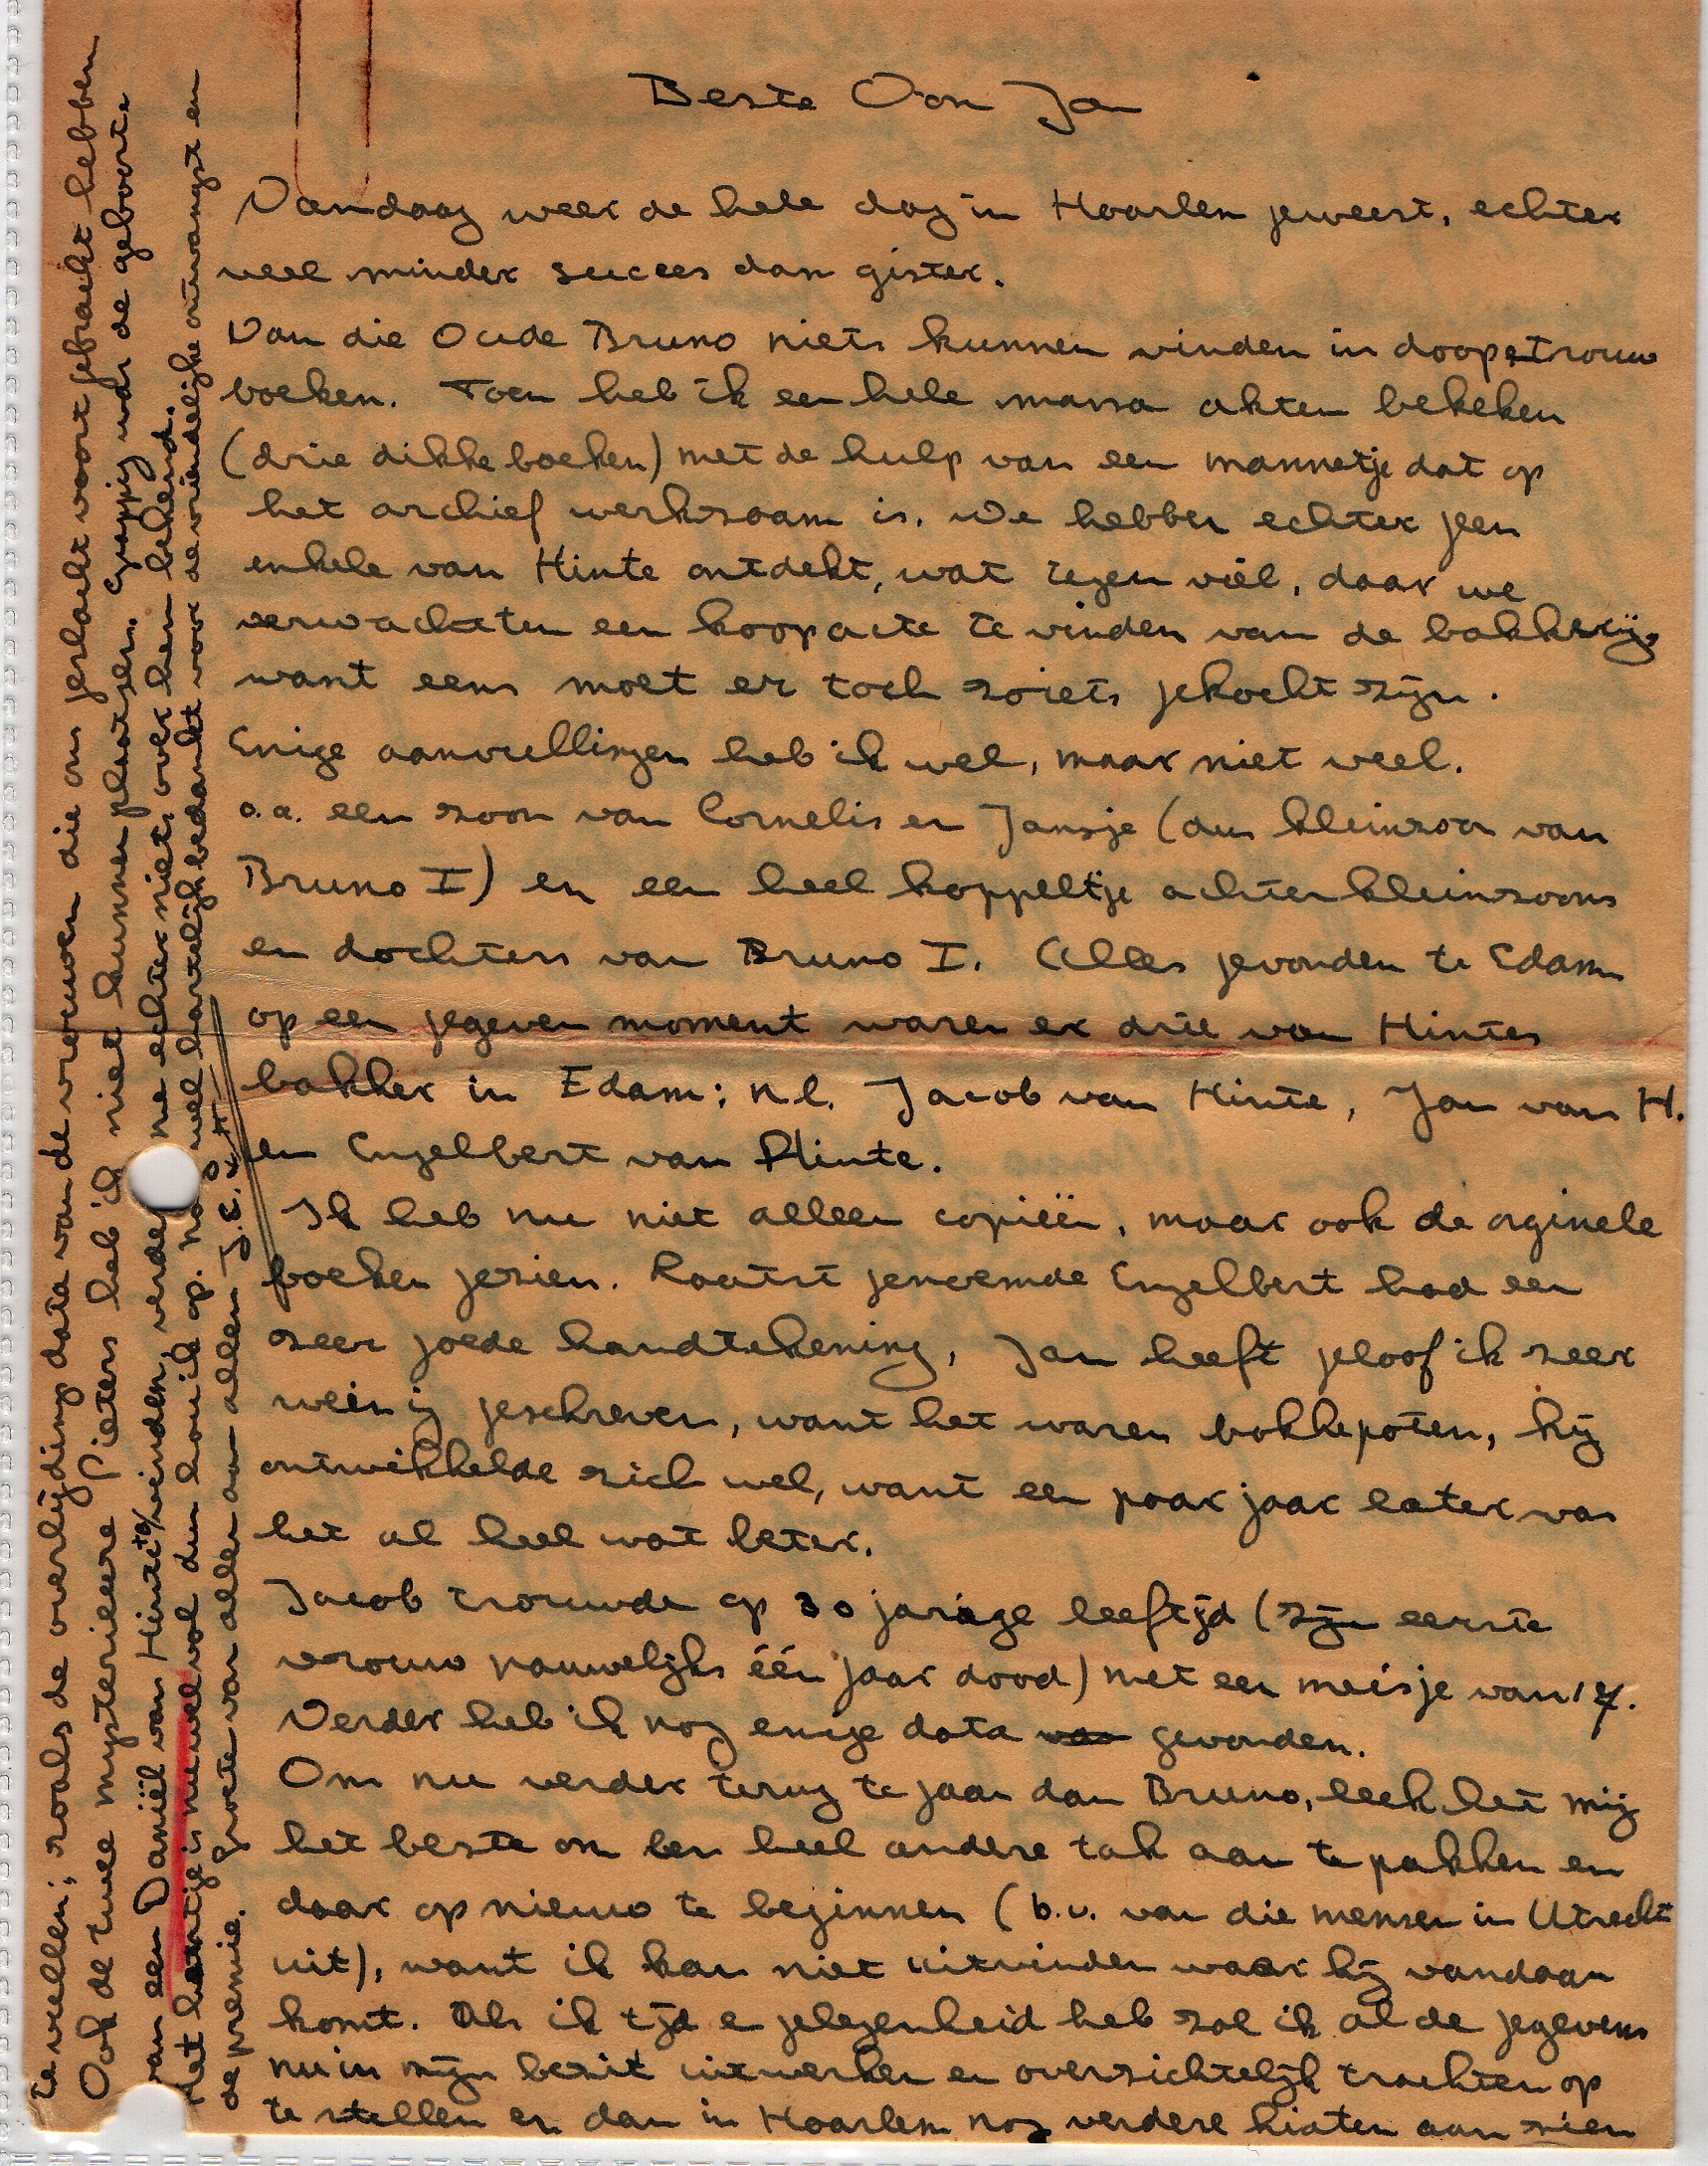 Beste Oom Jan
Vandaag weer de hele dag in Haarlem geweest, echter
veel minder succes dan gister.
Van die Oude Bruno niets kunnen vinden in doop et trouw
boeken. Toen heb ik een hele massa akten bekeken
(drie dikke boeken) met de hulp van een mannetje dat op
het archief werkzaam is. We hebben echter geen
enkele van Hinte ontdekt, wat tegen viel, daar we
verwachtten een koopacte te vinden van de bakkerij,
want eens moet er toch zoiets gekocht zijn.
Enige aanvullingen heb ik wel, maar niet veel.
o.a. een zoon van Cornelis en Jansje (dus kleinzoon van
Bruno I) en een heel koppeltje achterkleinzoons
en dochters van Bruno I. Alles gevonden te Edam
op een gegeven moment waren er drie van Hintes
bakker in Edam; n.l. Jacob van Hinte, Jan van H.
en Engelbert van Hinte.
Ik heb nu niet alleen copieën, maar ook de orginele
boeken gezien. Laatst genoemde Engelbert had een
zeer goede handtekening, Jan heeft geloof ik zeer
weinig geschreven, want het waren bokkepoten, hij
ontwikkelde zich wel, want een paar jaar later was
het al heel wat beter.
Jacob trouwde op 30 jarige leeftijd (zijn eerste
vrouw nauwelijks één jaar dood) met een meisje van 17.
Verder heb ik nog enige data gevonden.
Om nu verder terug te gaan dan Bruno, leek het mij
het beste om een heel andere tak aan te pakken en
daar opnieuw te beginnen (b.v. van die mensen in Utrecht
uit), want ik kan niet uitvinden waar hij vandaan
komt. Als ik tijd en gelegenheid heb zal ik al de gegevens
nu in mijn bezit uitwerken en overzichtelijk trachten op
te stellen en dan in Haarlem nog verdere hiaten aan zien
te vullen; zoals de overlijdings data van de vrouwen die ons geslacht voort gebracht hebben
Ook de twee mysterieere Pieters heb ik niet kunnen plaatsen. Grappig was de geboorte
van een Daniël van Hinte te vinden, verder me echter niets over hem bekend.
Het kaartje is nu wel vol dus hou ik op. Nog wel hartelijk bedankt voor de vriendelijke ontvangst en
de premie. Groete van allen aan allen J.E.v.H.